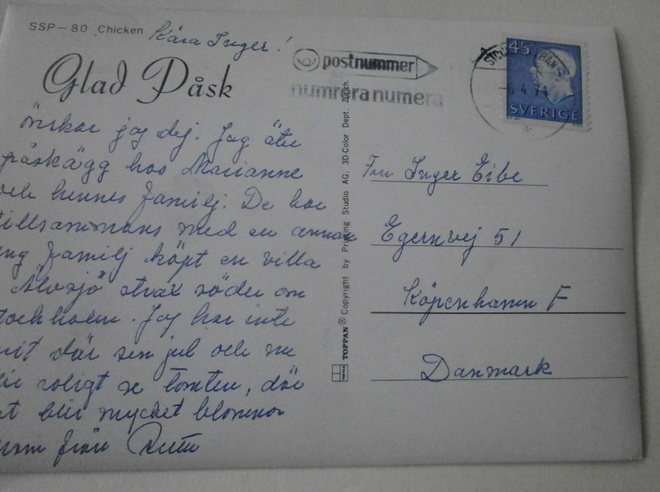 SSP-80 Chicken
Kära Inger!
Glad Påsk
önskar jag dej. Jag äter
påskägg hos Marianne
och hennes familj. De har
tillsammans med en annan
ung familj köpt en villa
Älvsjö strax söder om
tockholm. Jag har inte
rit där sen jul och nu
roligt se tomten, där
t blir mycket blommor
från
postnummer
numrera numera
45
SVERIGE
TOPPAN ® Copyright by Printing Studio AG. 3D-Color Dept. Zürich
Fru Inger Eibe
Egernvej 51
Köpenhamn F
Danmark